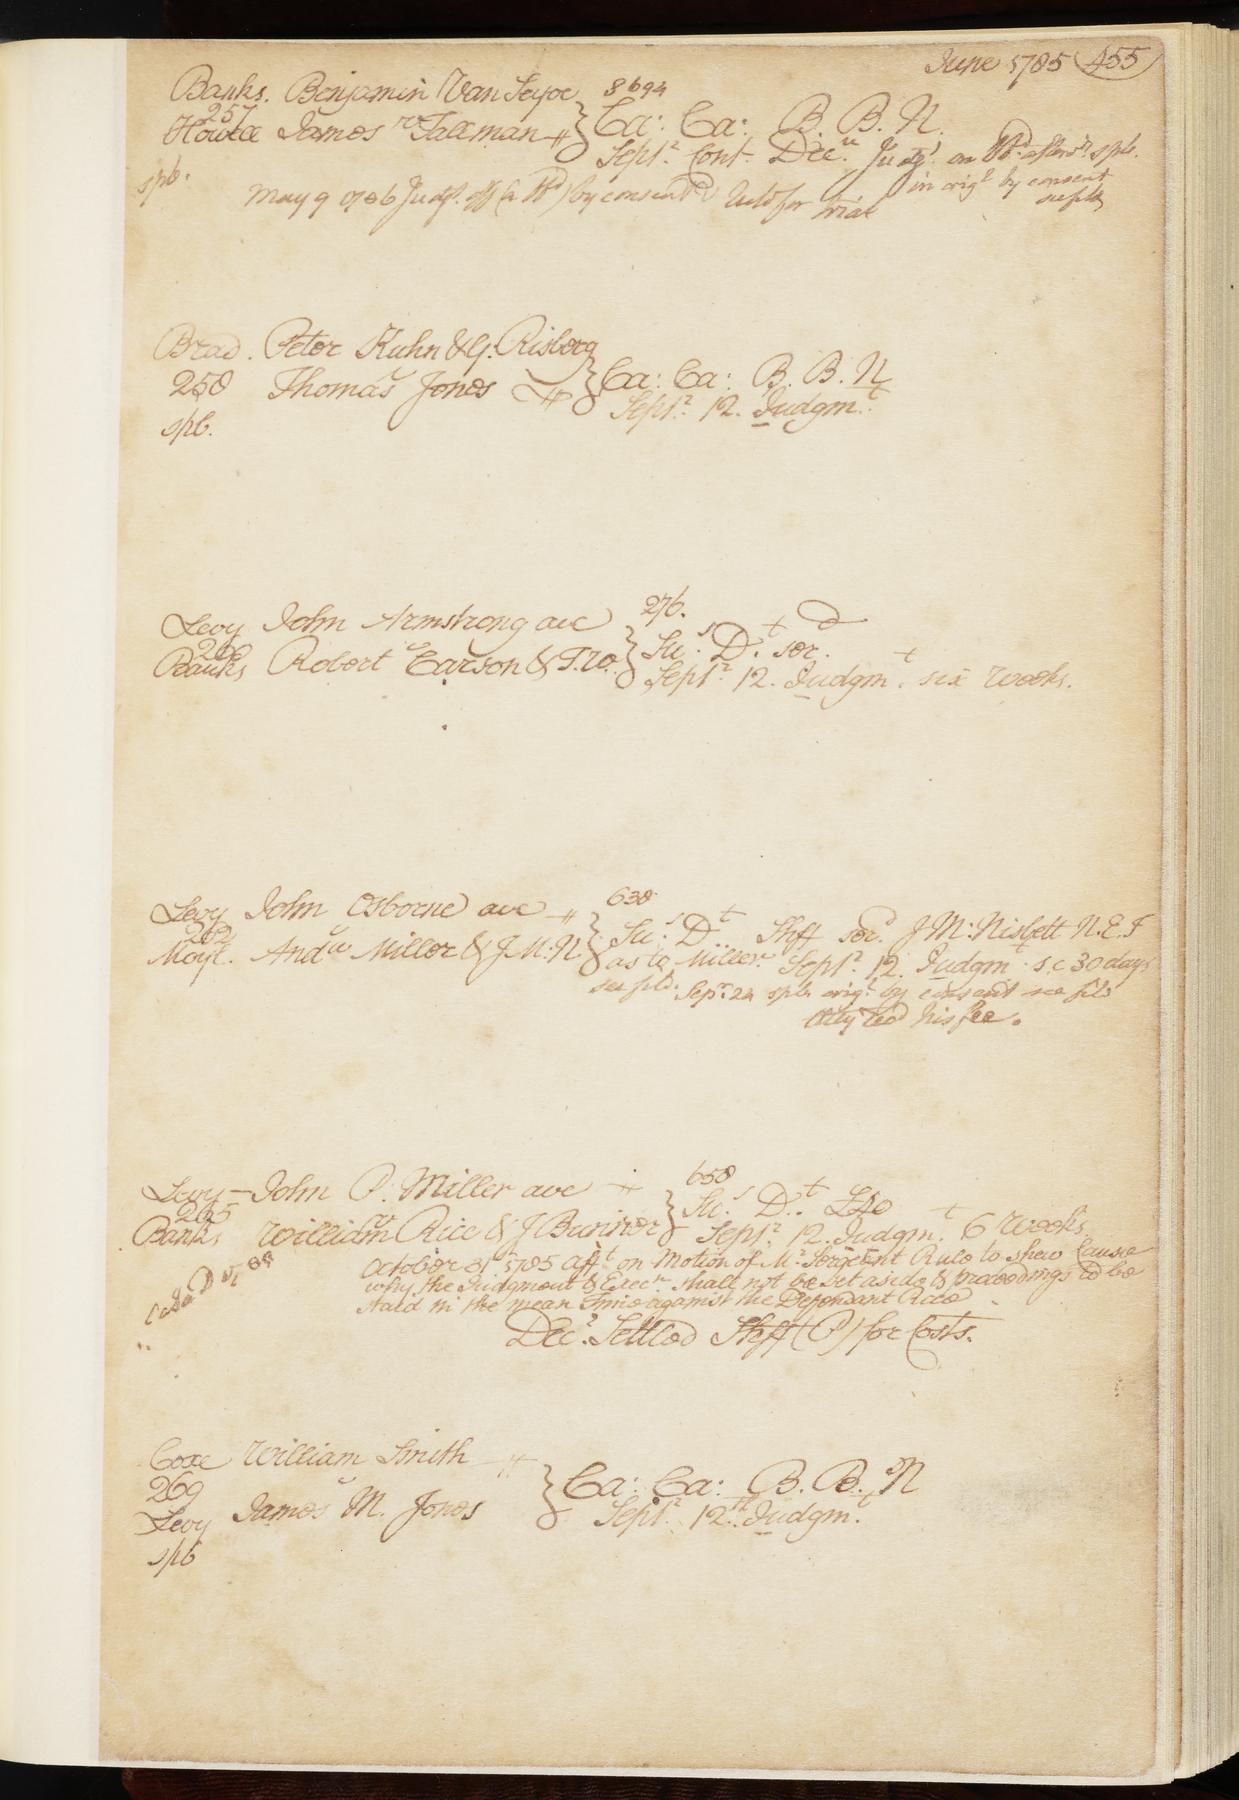 June 1785 455
Banks. Benjamin Van 8694
257
Howell James v Tallman Ca: Ca: B. B. N.
Sept.r Cont. Dec.r Judgt. on
spb. in orig.l by consent
May 9 1786 Judgt. by consent for trial
Brad. Peter Kuhn & G. Risberg
258 Thomas v Jones Ca: Ca: B. B. N
spb. Sept.r 12. Judgm.t
Levy John Armstrong ave 276.
Su.s D.t ser.
Banks Robert v Carson & T. Sept.r 12. Judgm.t six weeks.
Levy John Osborne ave 638
262 Su.s D.t Shff ser.d J M: Nisbett N.E.I
Moyl. And.w v Miller & J M. N as to Miller Sept.r 12. Judgm.t s.c 30 days
Sep.r 24 spb. orig.l by consent see fild
Atty rec'd his fee.
Levy John P. Miller ave 658
265 Su.s D.t
Banks William v Rice & J Bunner Sept.r 12. Judgm.t 6 Weeks
October 31st 1785 aff.t on Motion of M.r Sergeant Rule to shew Cause
why the Judgment & Exec.n shall not be set aside & proceedings to be
staid in the mean Time against the Defendant Rice
Dec.r Settled Shff (P) for Costs.
Coxe William Smith
269 Ca: Ca: B. B. N
Levy James v M. Jones Sept.r 12.th Judgm.t
spb